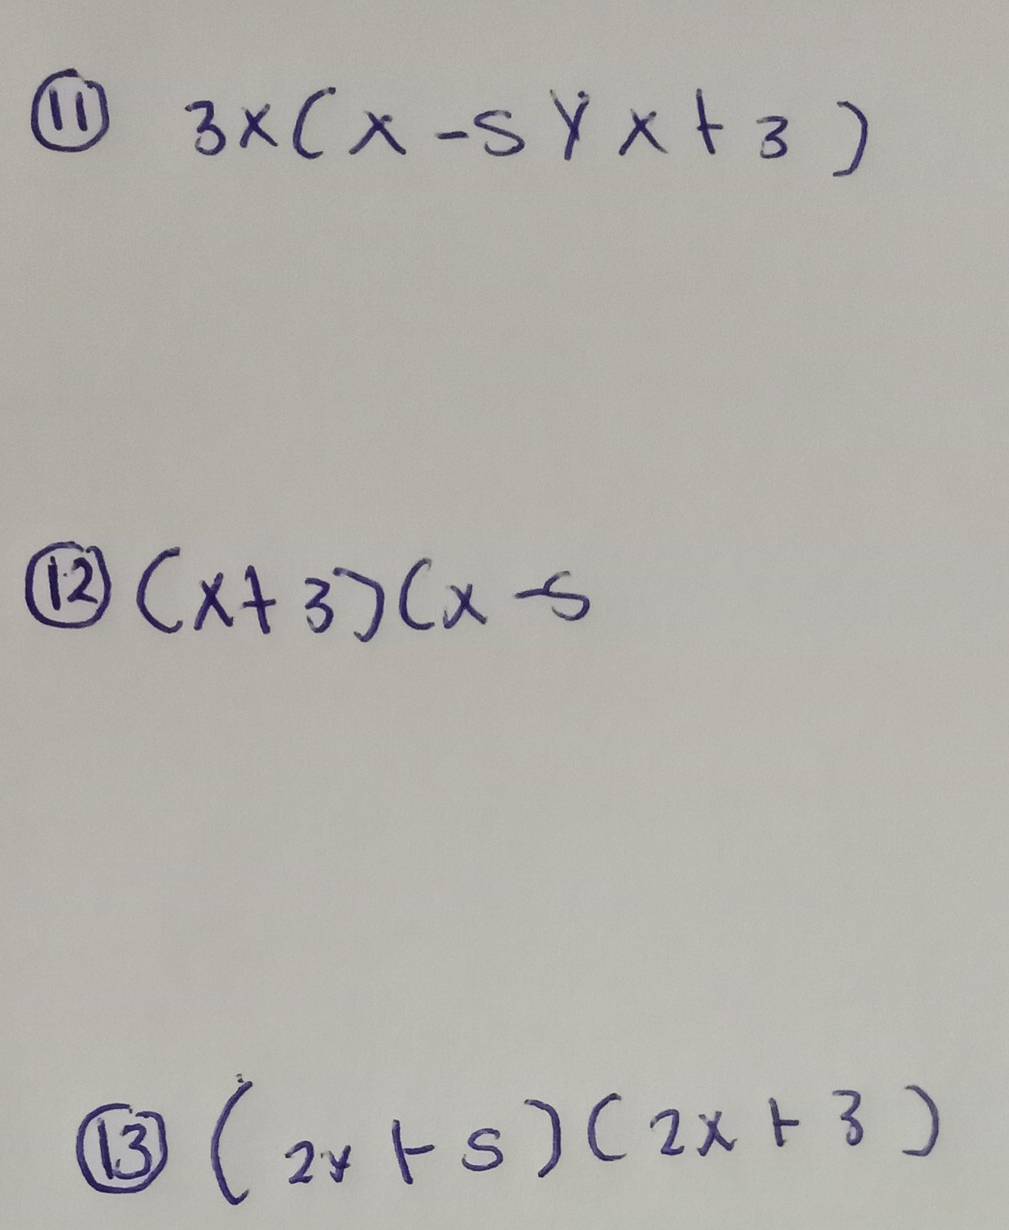 ⑪ 3x(x-5)(x+3)
⑫ (x+3)(x-5
⑬ (2x+5)(2x+3)